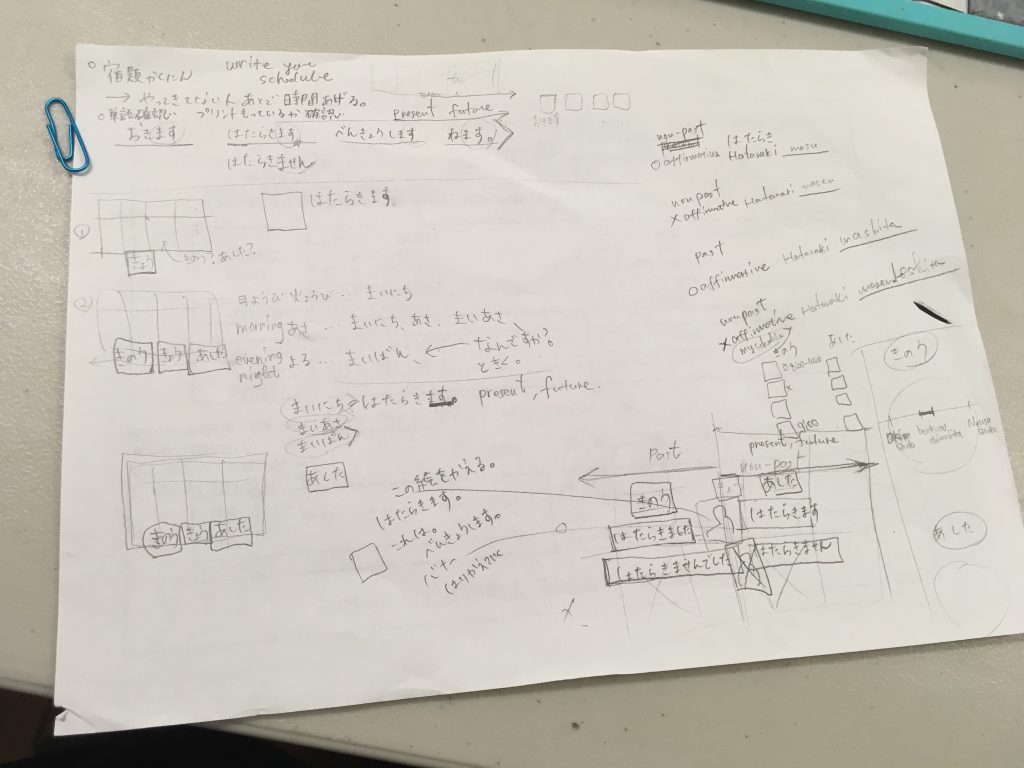 ○宿題かくにん write you
schedule
→ やってきてない人 あとで時間あげる。
○単語確認 プリントもっているか確認
present future
おきます はたらきます べんきょうします ねます。
はたらきません
おきます
① はたらきます
きょう きのう? あした?
② 月ようび 火ようび… まいにち
morning あさ … まいにち、あさ、まいあさ
evening よる … まいばん、 ← なんですか?
night ときく。
きのう きょう あした
まいにち はたらきます。 present, future.
まいあさ
まいばん
きのう きょう あした
あした
この絵をかえる。
はたらきます。
これは。
べんきょうします。
non-past はたらき
○affirmative Hataraki masu
nonpast
×affirmative Hataraki masen
past
○affirmative Hataraki mashita
nonpast
×affirmative Hataraki masendeshita
きのう あした
present, future
Past non-past
きのう あした
はたらきました はたらきます
はたらきませんでした はたらきません
きのう
あした